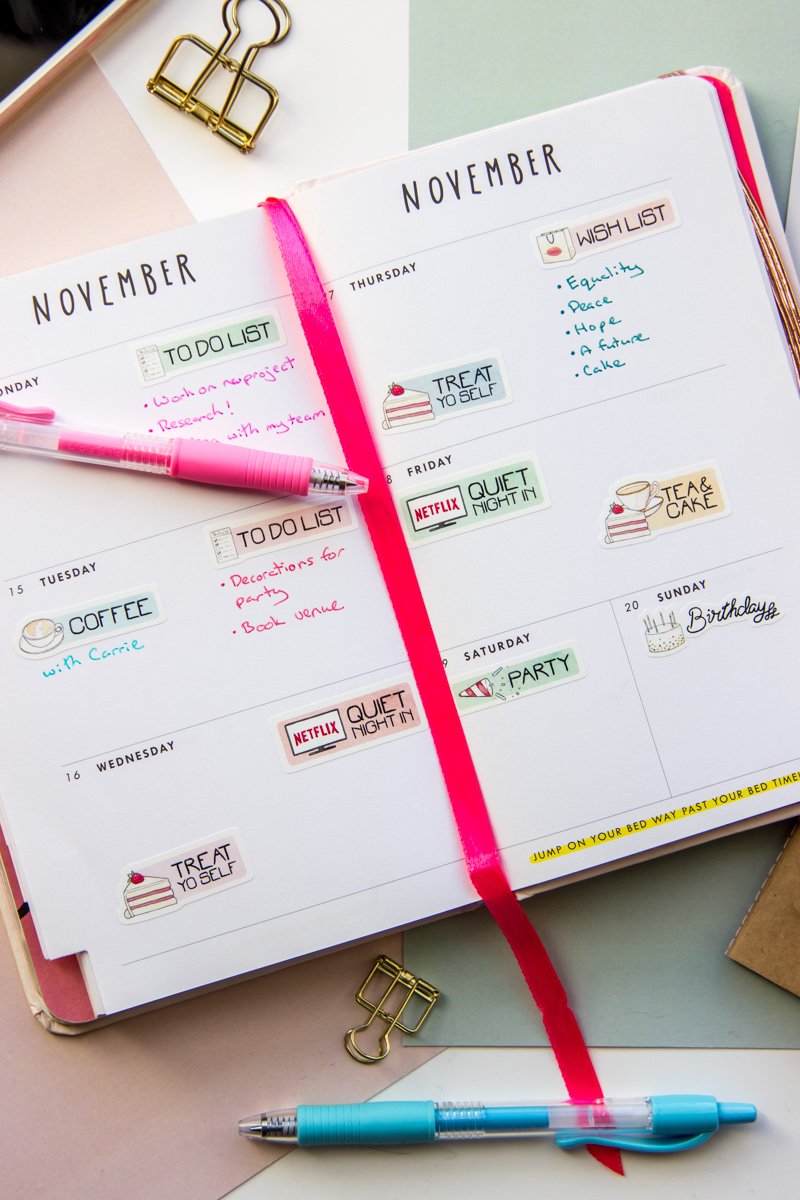 NOVEMBER
TO DO LIST
• Work on new project
• Research!
with my team
15 TUESDAY
COFFEE
with Carrie
TO DO LIST
• Decorations for
party
• Book venue
16 WEDNESDAY
NETFLIX
QUIET
NIGHT IN
TREAT
YO SELF
NOVEMBER
THURSDAY
WISH LIST
• Equality
• Peace
• Hope
• A future
• Cake
TREAT
YO SELF
FRIDAY
NETFLIX
QUIET
NIGHT IN
TEA &
CAKE
SATURDAY
PARTY
20 SUNDAY
Birthday
JUMP ON YOUR BED WAY PAST YOUR BED TIME